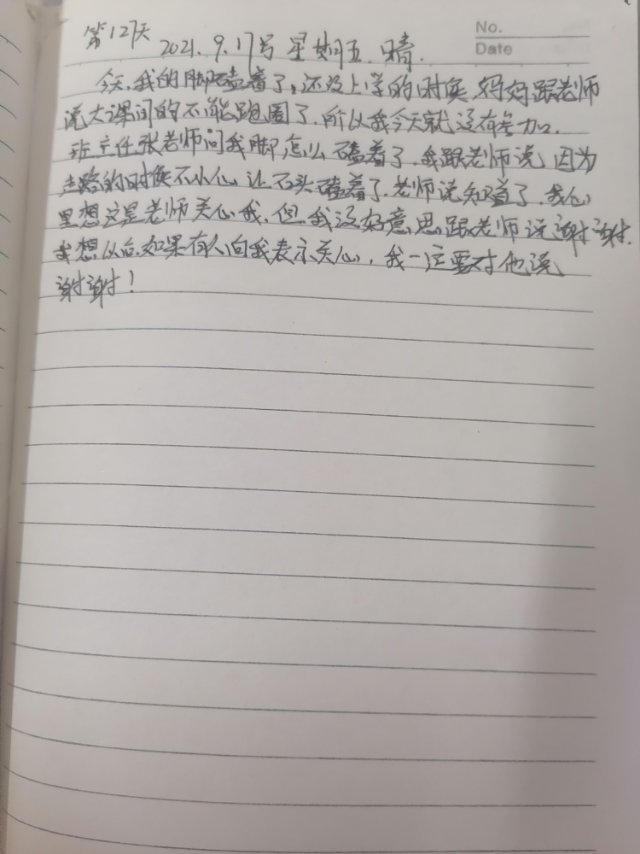 No.
Date
第127天
2021.9.17号 星期五 晴.
今天,我的脚磕着了,还没上学的时候,妈妈跟老师
说大课间的不能跑圈了.所以我今天就没有参加.
班主任张老师问我脚怎么磕着了.我跟老师说,因为
走路的时候不小心,让石头磕着了.老师说知道了.我心
里想这是老师关心我,但我没好意思跟老师说谢谢.
我想以后如果有人向我表示关心,我一定要对他说
谢谢!